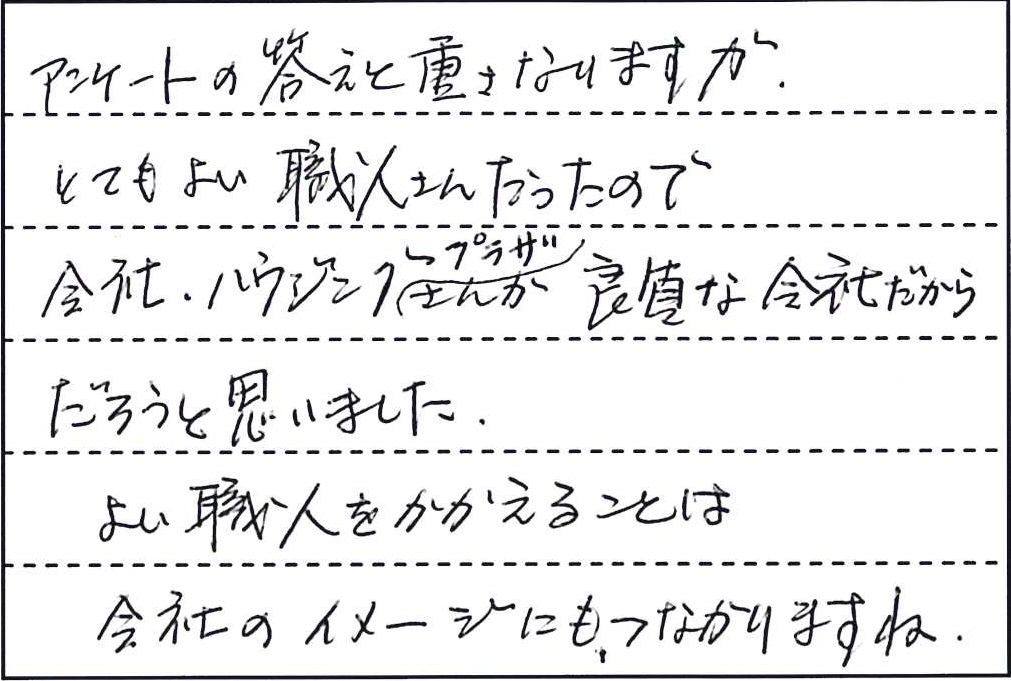 アンケートの答えと重さなりますが.
とてもよい職人さんだったので
会社.ハウジングプラザさんが良質な会社だから
だろうと思いました.
よい職人をかかえることは
会社のイメージにもつながりますね.